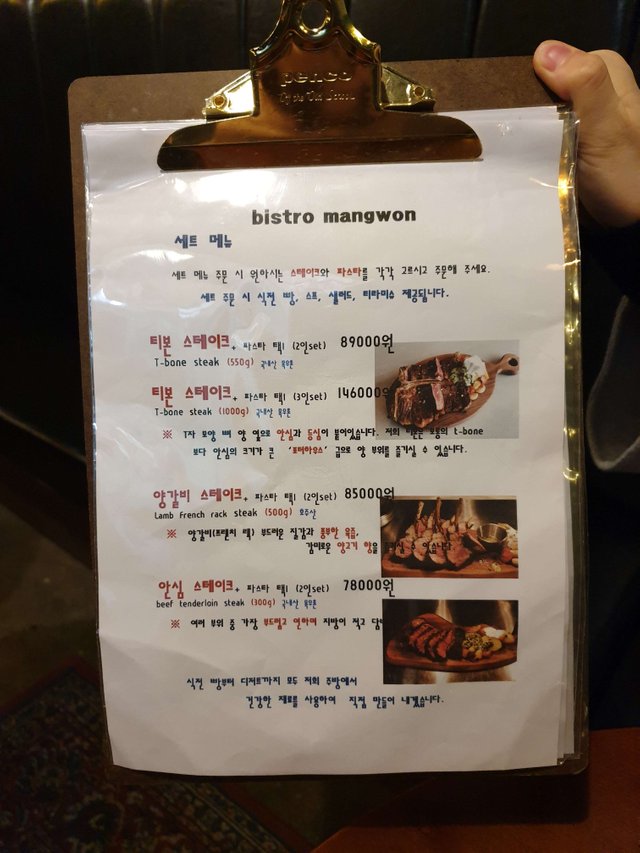 penco
bistro mangwon
세트 메뉴
세트 메뉴 주문 시 원하시는 스테이크와 파스타를 각각 고르시고 주문해 주세요.
세트 주문 시 식전 빵, 스프, 샐러드, 티라미슈 제공됩니다.
티본 스테이크+ 파스타 택1 (2인set) 89000원
T-bone steak (550g) 국내산 육우
티본 스테이크+ 파스타 택1 (3인set) 146000원
T-bone steak (1000g) 국내산 육우
※ T자 모양 뼈 양 옆으로 안심과 등심이 붙어있습니다. 저희 티본은 보통의 t-bone
보다 안심의 크기가 큰 '포터하우스' 급으로 양 부위를 즐기실 수 있습니다.
양갈비 스테이크+ 파스타 택1 (2인set) 85000원
Lamb French rack steak (500g) 호주산
※ 양갈비(프렌치 랙) 부드러운 질감과 풍부한 육즙,
감미로운 양고기 향을 즐기실 수 있습니다
안심 스테이크+ 파스타 택1 (2인set) 78000원
beef tenderloin steak (300g) 국내산 육우
※ 여러 부위 중 가장 부드럽고 연하며 지방이 적고 담
식전 빵부터 디저트까지 모두 저희 주방에서
건강한 재료를 사용하여 직접 만들어 내겠습니다.